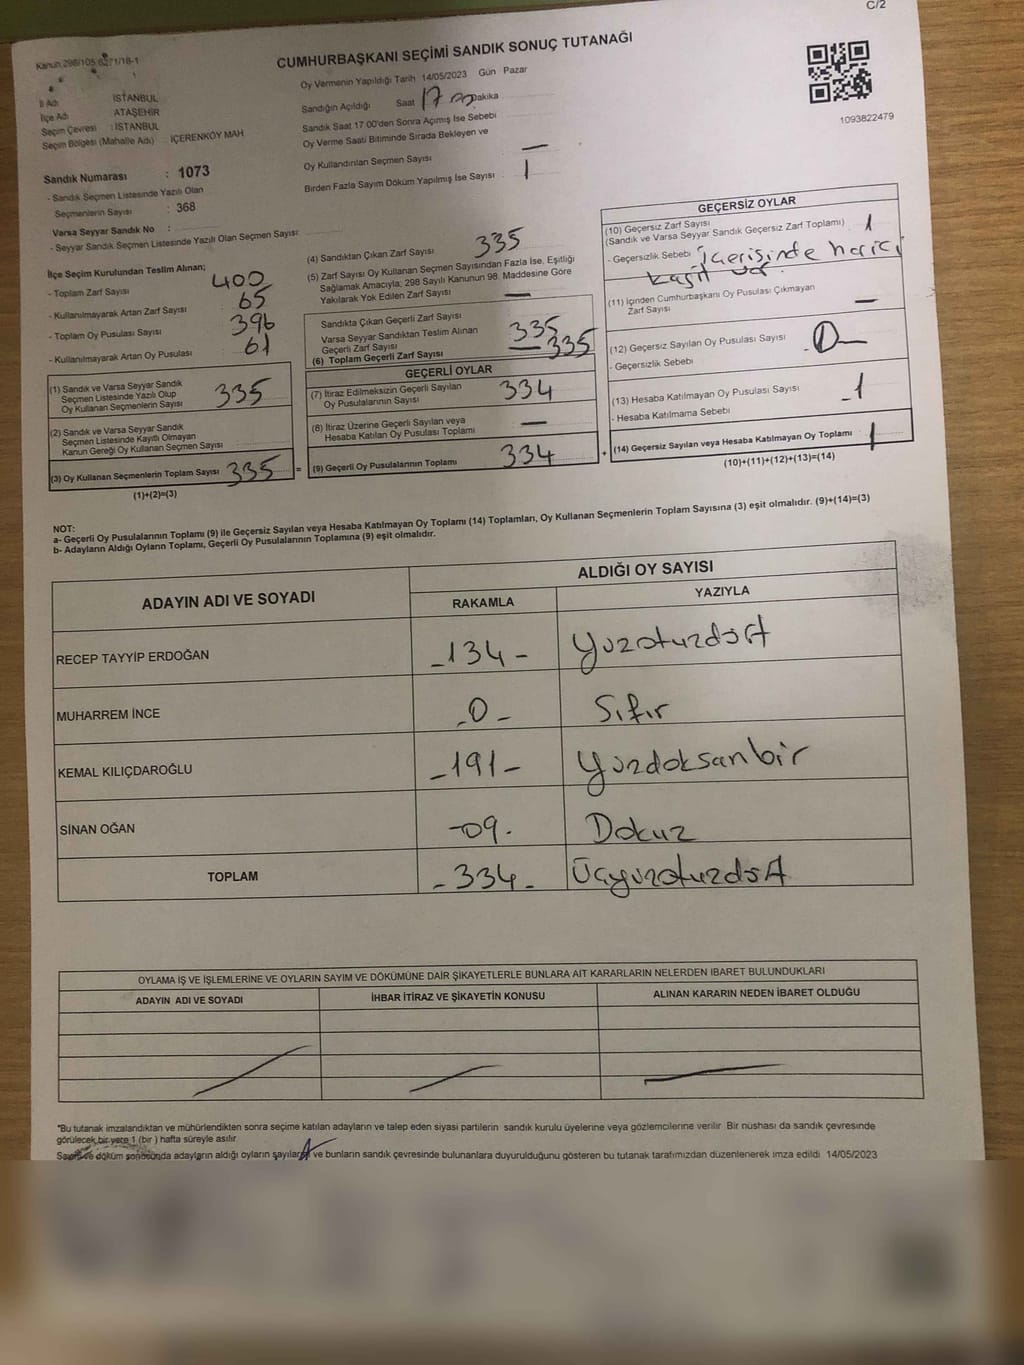 C/2
Kanun 298/105 6271/18-1
CUMHURBAŞKANI SEÇİMİ SANDIK SONUÇ TUTANAĞI
Oy Vermenin Yapıldığı Tarih 14/05/2023 Gün Pazar
Sandığın Açıldığı Saat 17 00 Dakika
Sandık Saat 17 00'den Sonra Açımış İse Sebebi
Oy Verme Saati Bitiminde Sırada Bekleyen ve
Oy Kullandırılan Seçmen Sayısı —
Birden Fazla Sayım Döküm Yapılmış İse Sayısı 1
1093822479
İl Adı İSTANBUL
İlçe Adı ATAŞEHİR
Seçim Çevresi : İSTANBUL
Seçim Bölgesi (Mahalle Adı) İÇERENKÖY MAH
Sandık Numarası : 1073
- Sandık Seçmen Listesinde Yazılı Olan
Seçmenlerin Sayısı : 368
Varsa Seyyar Sandık No :
- Seyyar Sandık Seçmen Listesinde Yazılı Olan Seçmen Sayısı:
İlçe Seçim Kurulundan Teslim Alınan;
- Toplam Zarf Sayısı 400
- Kullanılmayarak Artan Zarf Sayısı 65
- Toplam Oy Pusulası Sayısı 396
- Kullanılmayarak Artan Oy Pusulası 61
(1) Sandık ve Varsa Seyyar Sandık
Seçmen Listesinde Yazılı Olup
Oy Kullanan Seçmenlerin Sayısı 335
(2) Sandık ve Varsa Seyyar Sandık
Seçmen Listesinde Kayıtlı Olmayan
Kanun Gereği Oy Kullanan Seçmen Sayısı
(3) Oy Kullanan Seçmenlerin Toplam Sayısı 335 =
(1)+(2)=(3)
(4) Sandıktan Çıkan Zarf Sayısı 335
(5) Zarf Sayısı Oy Kullanan Seçmen Sayısından Fazla İse, Eşitliği
Sağlamak Amacıyla; 298 Sayılı Kanunun 98. Maddesine Göre
Yakılarak Yok Edilen Zarf Sayısı —
Sandıkta Çıkan Geçerli Zarf Sayısı 335
Varsa Seyyar Sandıktan Teslim Alınan
Geçerli Zarf Sayısı —
(6) Toplam Geçerli Zarf Sayısı 335
GEÇERLİ OYLAR
(7) İtiraz Edilmeksizin Geçerli Sayılan
Oy Pusulalarının Sayısı 334
(8) İtiraz Üzerine Geçerli Sayılan veya
Hesaba Katılan Oy Pusulası Toplamı —
(9) Geçerli Oy Pusulalarının Toplamı 334 +
GEÇERSİZ OYLAR
(10) Geçersiz Zarf Sayısı
(Sandık ve Varsa Seyyar Sandık Geçersiz Zarf Toplamı) 1
- Geçersizlik Sebebi İçerisinde harici
kağıt var
(11) İçinden Cumhurbaşkanı Oy Pusulası Çıkmayan
Zarf Sayısı —
(12) Geçersiz Sayılan Oy Pusulası Sayısı 0
- Geçersizlik Sebebi
(13) Hesaba Katılmayan Oy Pusulası Sayısı 1
- Hesaba Katılmama Sebebi
(14) Geçersiz Sayılan veya Hesaba Katılmayan Oy Toplamı 1
(10)+(11)+(12)+(13)=(14)
NOT:
a- Geçerli Oy Pusulalarının Toplamı (9) ile Geçersiz Sayılan veya Hesaba Katılmayan Oy Toplamı (14) Toplamları, Oy Kullanan Seçmenlerin Toplam Sayısına (3) eşit olmalıdır. (9)+(14)=(3)
b- Adayların Aldığı Oyların Toplamı, Geçerli Oy Pusulalarının Toplamına (9) eşit olmalıdır.
ADAYIN ADI VE SOYADI
ALDIĞI OY SAYISI
RAKAMLA YAZIYLA
RECEP TAYYİP ERDOĞAN -134- Yüzotuzdört
MUHARREM İNCE -0- Sıfır
KEMAL KILIÇDAROĞLU -191- Yüzdoksanbir
SİNAN OĞAN -09- Dokuz
TOPLAM -334- Üçyüzotuzdört
OYLAMA İŞ VE İŞLEMLERİNE VE OYLARIN SAYIM VE DÖKÜMÜNE DAİR ŞİKAYETLERLE BUNLARA AİT KARARLARIN NELERDEN İBARET BULUNDUKLARI
ADAYIN ADI VE SOYADI İHBAR İTİRAZ VE ŞİKAYETİN KONUSU ALINAN KARARIN NEDEN İBARET OLDUĞU
*Bu tutanak imzalandıktan ve mühürlendikten sonra seçime katılan adayların ve talep eden siyasi partilerin sandık kurulu üyelerine veya gözlemcilerine verilir. Bir nüshası da sandık çevresinde
görülecek bir yere 1 (bir) hafta süreyle asılır.
Sayım ve döküm sonucunda adayların aldığı oyların sayıları ve bunların sandık çevresinde bulunanlara duyurulduğunu gösteren bu tutanak tarafımızdan düzenlenerek imza edildi. 14/05/2023